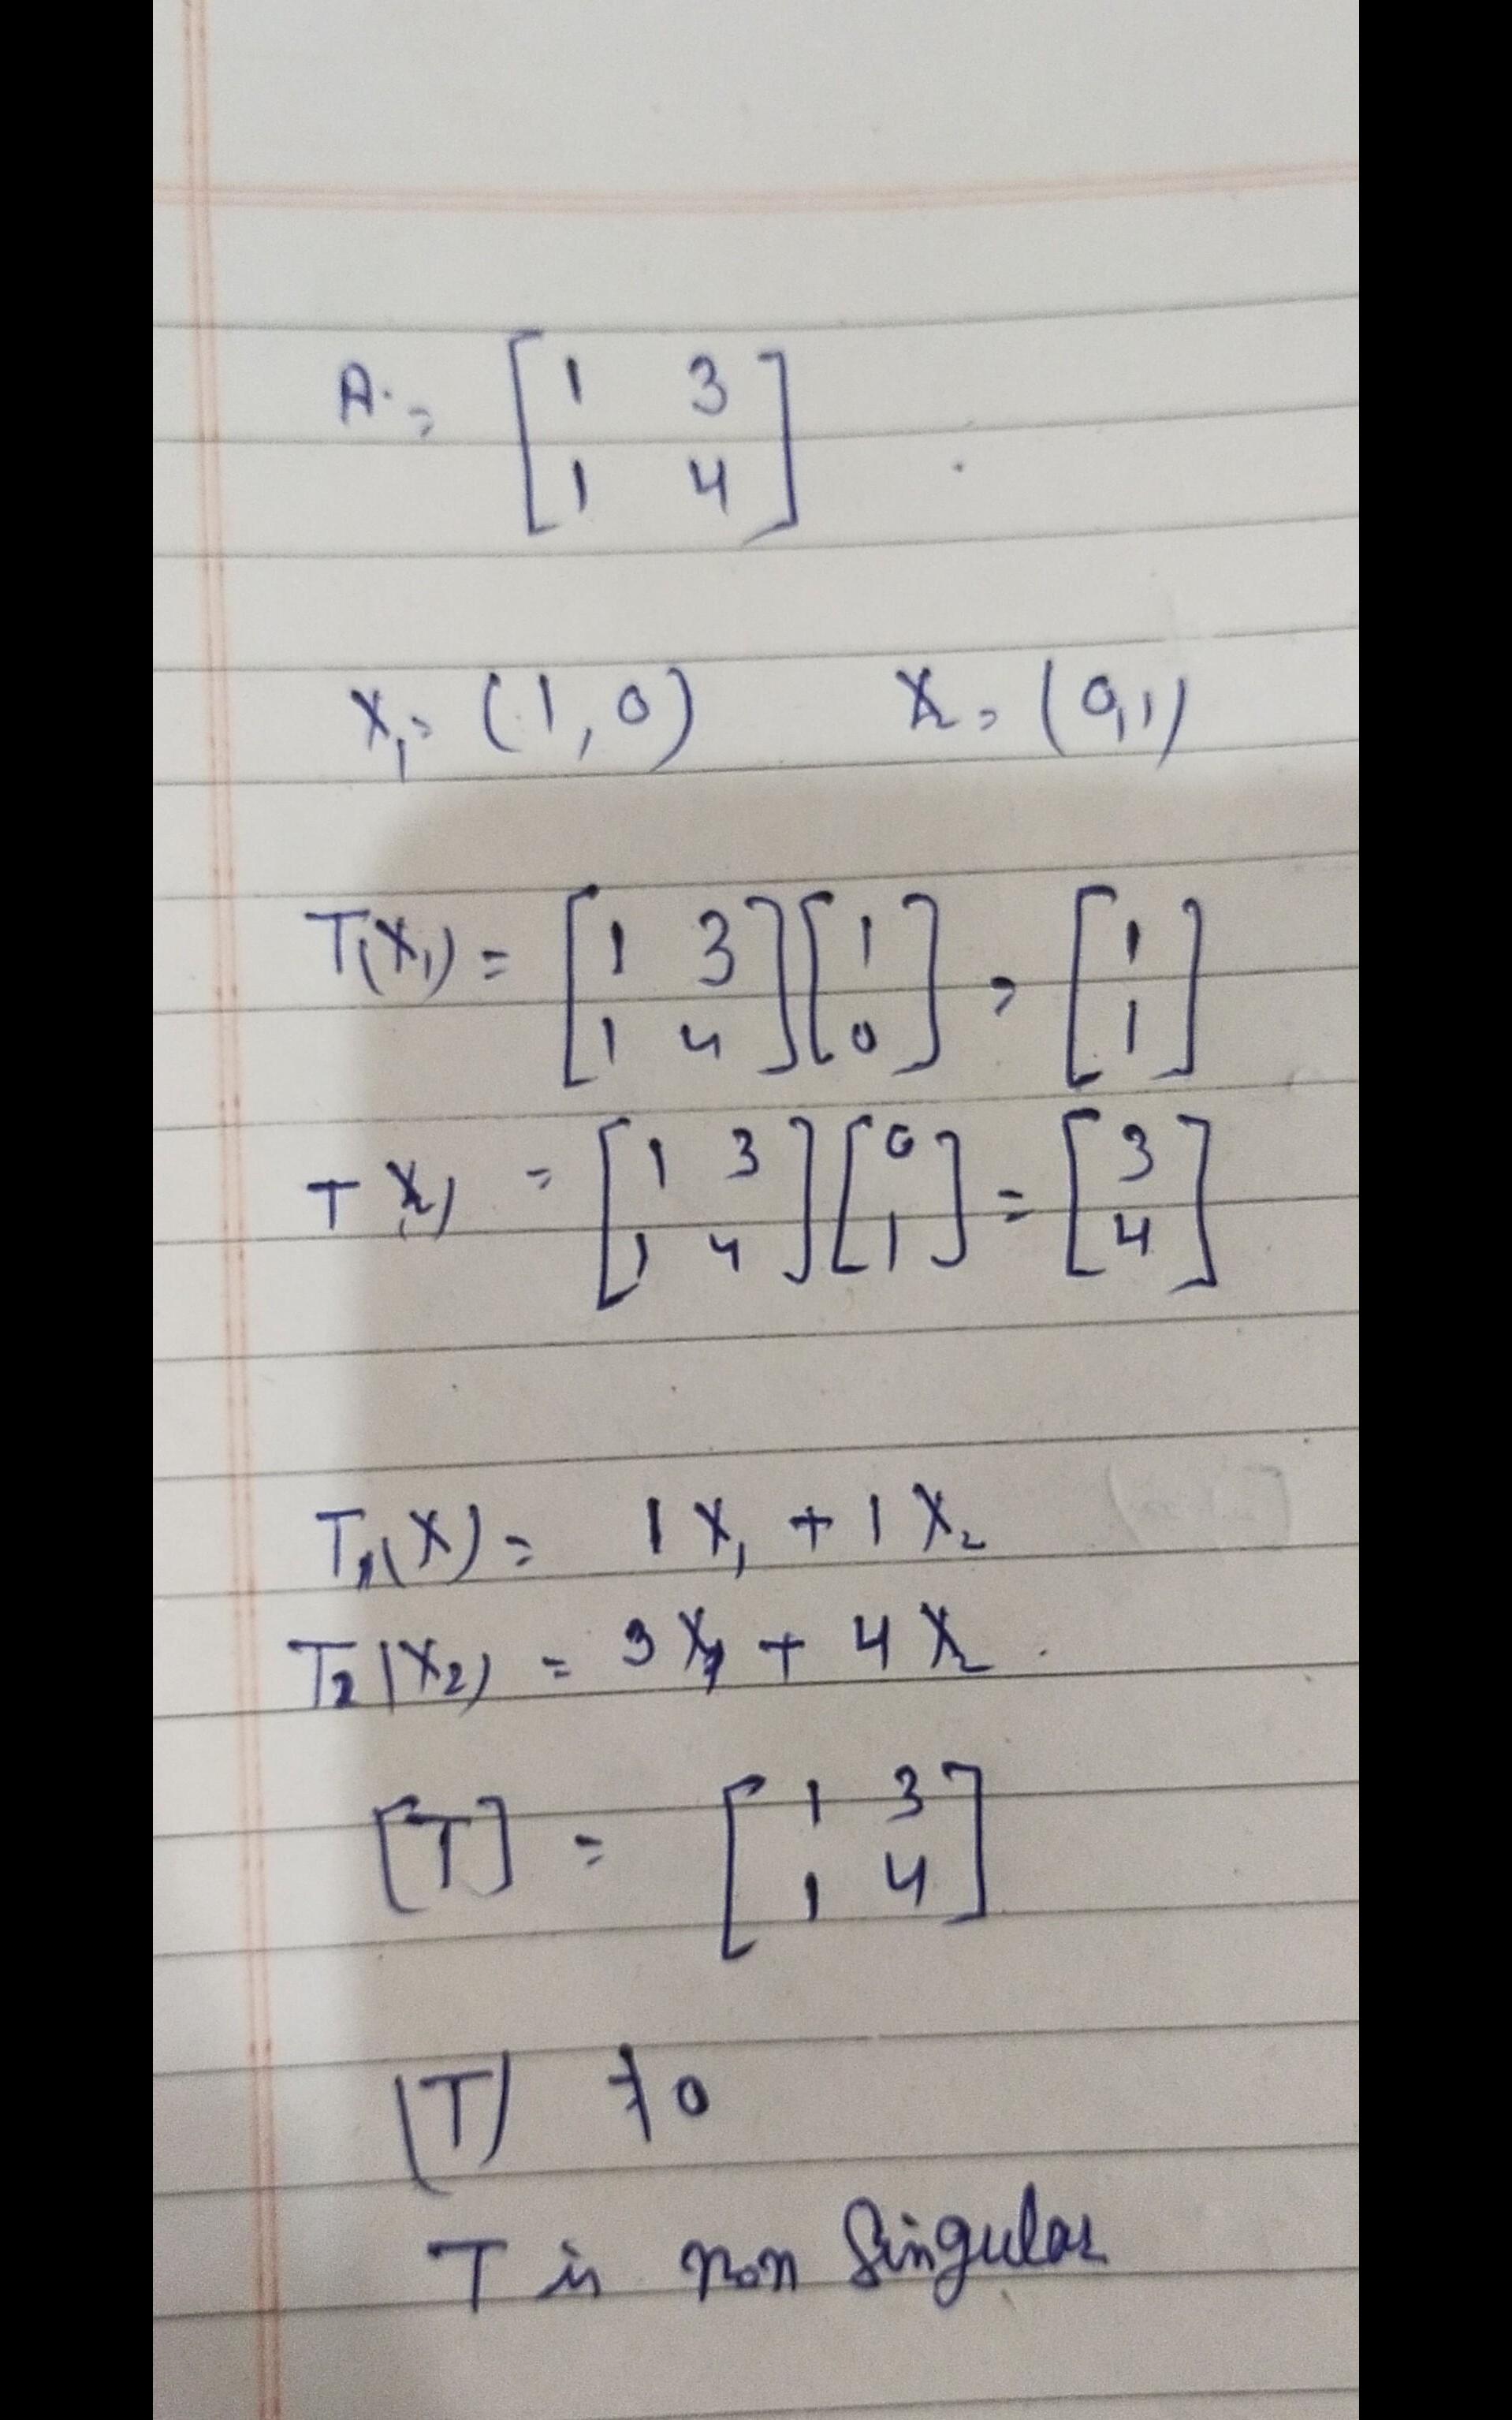 A = [ 1 3
1 4 ]
X₁ = (1, 0) X₂ = (0, 1)
T(X₁) = [ 1 3
1 4 ] [ 1
0 ] = [ 1
1 ]
T X₂) = [ 1 3
1 4 ] [ 0
1 ] = [ 3
4 ]
T₁(X) = 1 X₁ + 1 X₂
T₂(X₂) = 3 X₁ + 4 X₂
[T] = [ 1 3
1 4 ]
|T| ≠ 0
T is non Singular